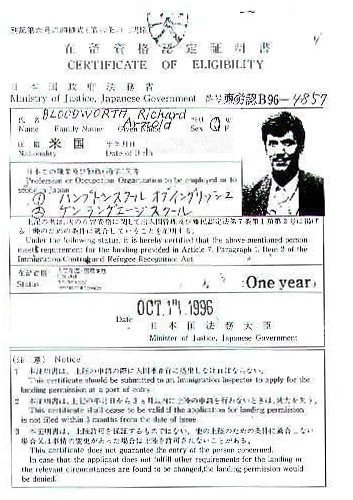 在留資格認定証明書
CERTIFICATE OF ELIGIBILITY
日本国政府法務省
Ministry of Justice, Japanese Government 番号 東労認B96-4857
氏名 BLOODWORTH, Richard Arnold
Name Family Name Given Name Sex M F
国籍 米国 生年月日
Nationality Date of Birth
Profession or Occupation Organization to be employed or to study in Japan
① ハンプトンスクール オブイングリッシュ
② ゲンランゲージスクール
Under the following status, it is hereby certified that the above-mentioned person
meets requirement for the landing provided in Article 7, Paragraph 1, Item 2 of the
Immigration Control and Refugee Recognition Act.
在留資格
Status
: One year)
OCT. 11. 1996
Date
日本国法務大臣
Minister of Justice, Japanese Government
(注意) Notice
1 本証明書は、上陸の申請の際に入国審査官に提出しなければならない。
This certificate should be submitted to an Immigration inspector to apply for the
landing permission at a port of entry.
2 本証明書は、上記の年月日から3ヵ月以内に上陸の申請を行わないときは、効力を失う。
This certificate shall cease to be valid if the application for landing permission
is not filed within 3 months from the date of issue.
3 本証明書は、上陸許可を保証するものではない。他の上陸のための条件に適合しない
場合又は事情の変更があった場合は上陸を許可されないことがある。
This certificate does not guarantee the entry of the person concerned.
In case that the applicant does not fulfill other requirements for the landing or
the relevant circumstances are found to be changed, the landing permission would
be denied.